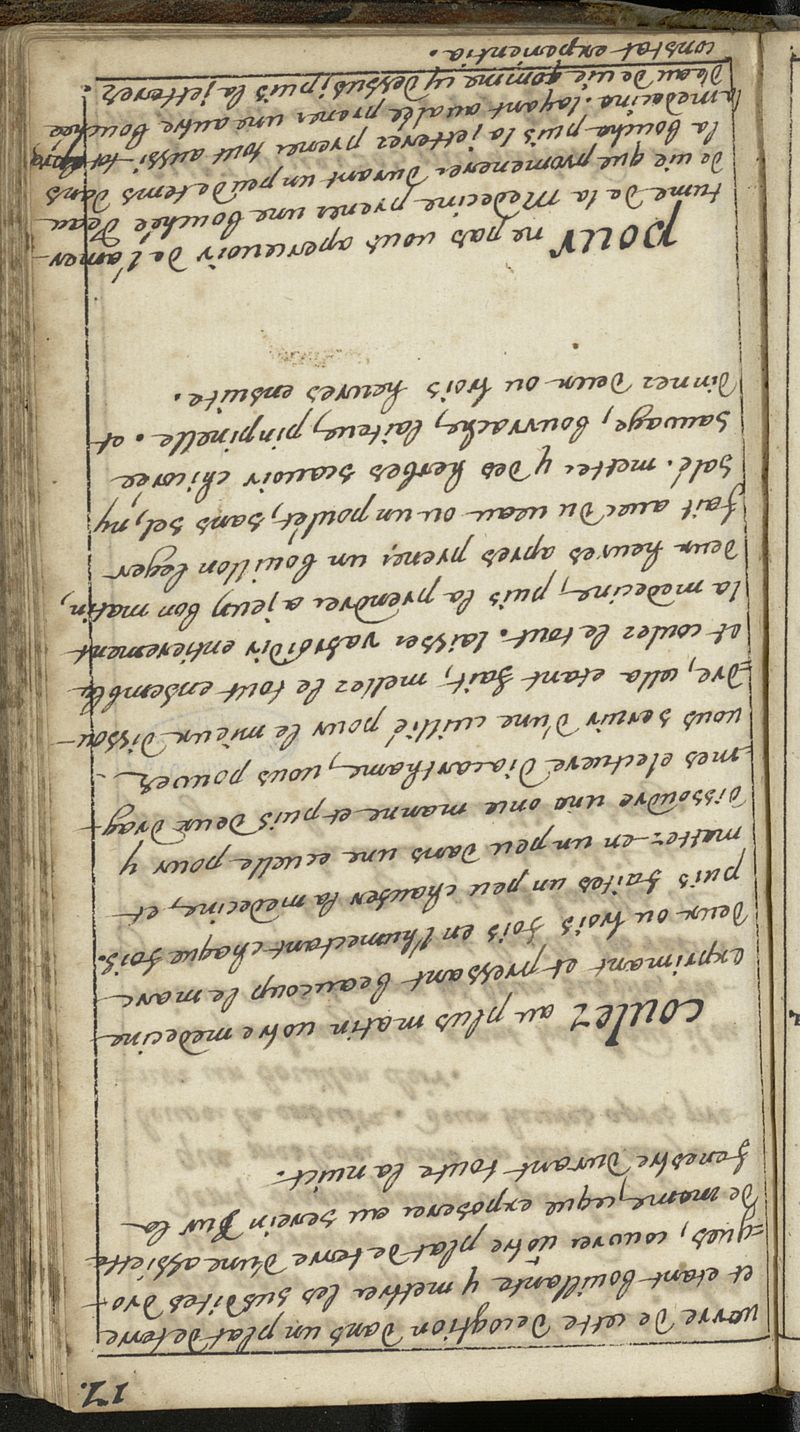 17.
verre de cette decogtion dans un plat de terre
et etant bouillante y mettrez les susdites dro-
=gues, couvrez vôtre plat de terre d'une assiette
de mame, que exposerez au serein sur la
fenestre durant toute la nuict.
coulez au plus matin votre medecine
exprimant et pressant beaucoup le marc
deux ou trois fois en l'humectant chaque fois.
puis faites un peu chaufer la medecine, et
mettez-en un peu dans une ecuelle pour y
dissoudre une once manne et puis deux drag-
=mes electuere diacarthame, vous pouvez
vous servir d'une cuillié pour le mieux dissou-
=dre, cella etant fait, mellez le tout ensemble
et coulez le tout. laisser rafroidir entierement
la medecine, puis la prendrez a jeun, bon matin,
deux heures apres prenez un bouillon leger
fait avec du veau ou un poulet, sans sel, ny
salé. mettez y des herbes scavoir chicorée
sauvage, bourrache, laiteue, pinpinelle. et
dinnez deux ou trois heures ensuite.
pour ne pas vous apercevoir de l'amer-
tume de la medecine prenez une bouchée d'eau
de vie que promenerez durant un peu de tems dans
la bouche puis la jetterez prenez tout aussi tot apres
la medecine. layant avalée prenez une autre bouchée
d'eau de vie comme cy dessus, puis la jetterez.
constat experientia.